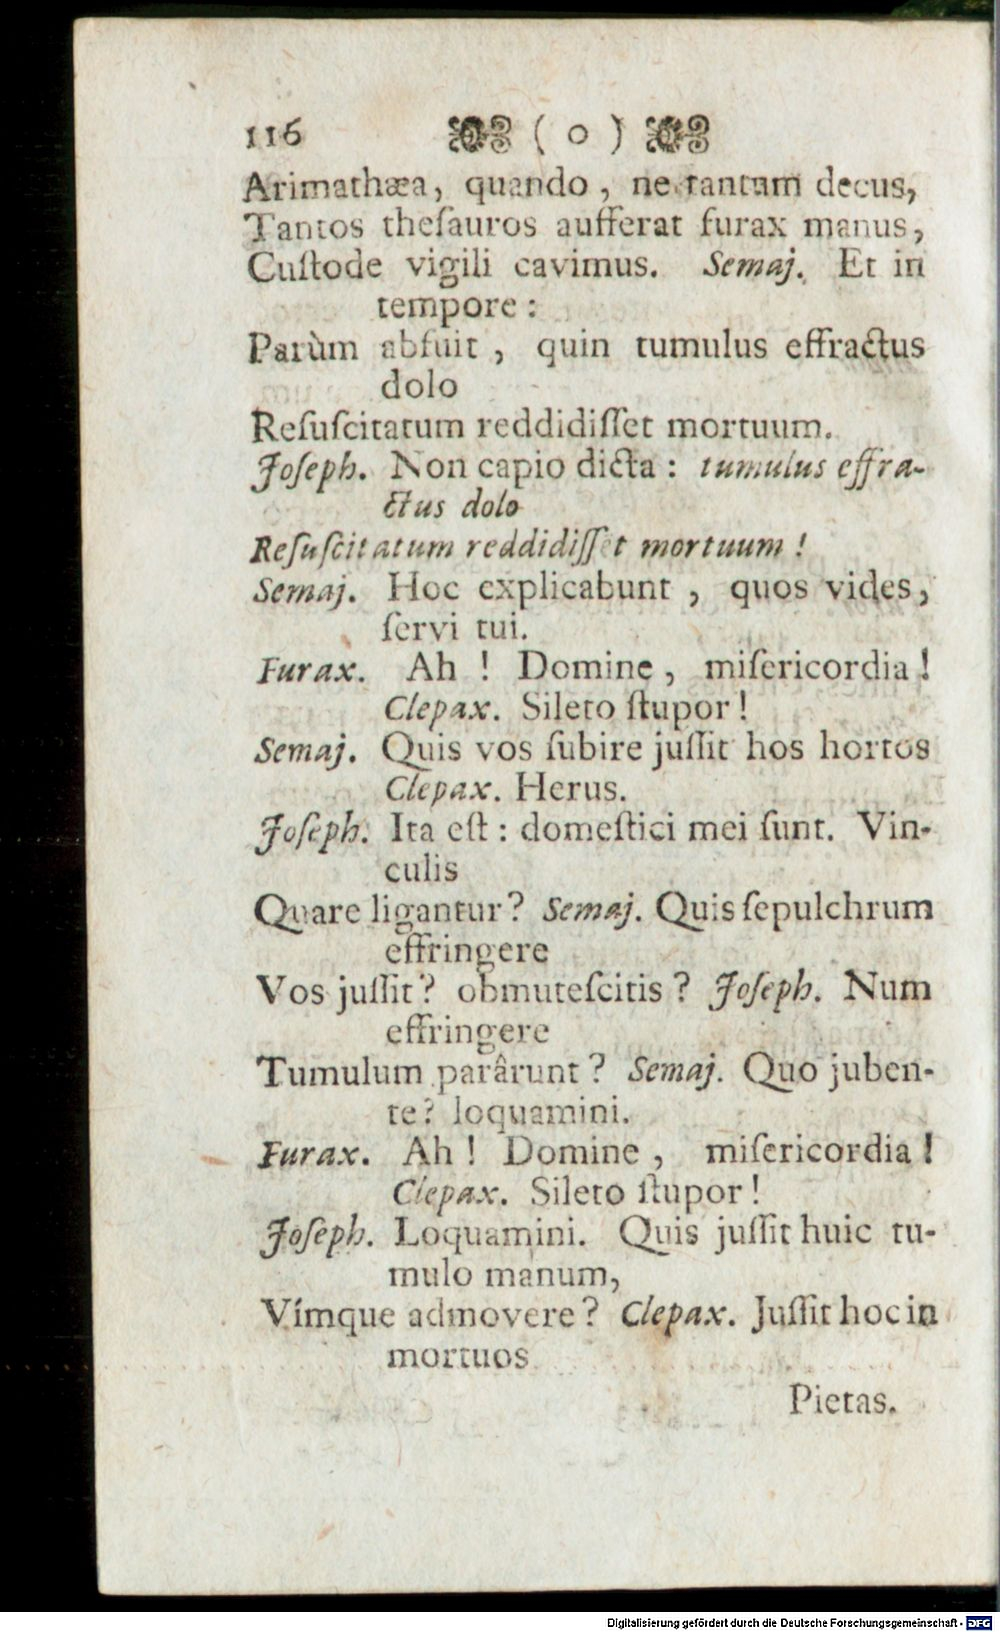 116 ( o )
Arimathæa, quando, ne tantum decus,
Tantos theſauros aufferat furax manus,
Cuſtode vigili cavimus. Semaj. Et in
tempore:
Parùm abfuit, quin tumulus effractus
dolo
Reſuſcitatum reddidiſſet mortuum.
Joſeph. Non capio dicta: tumulus effra-
ctus dolo
Reſuſcitatum reddidiſſet mortuum!
Semaj. Hoc explicabunt, quos vides,
ſervi tui.
Furax. Ah! Domine, miſericordia!
Clepax. Sileto ſtupor!
Semaj. Quis vos ſubire juſſit hos hortos
Clepax. Herus.
Joſeph. Ita eſt: domeſtici mei ſunt. Vin-
culis
Quare ligantur? Semaj. Quis ſepulchrum
effringere
Vos juſſit? obmuteſcitis? Joſeph. Num
effringere
Tumulum parârunt? Semaj. Quo juben-
te? loquamini.
Furax. Ah! Domine, miſericordia!
Clepax. Sileto ſtupor!
Joſeph. Loquamini. Quis juſſit huic tu-
mulo manum,
Vímque admovere? Clepax. Juſſit hoc in
mortuos
Pietas.
Digitalisierung gefördert durch die Deutsche Forschungsgemeinschaft - DFG